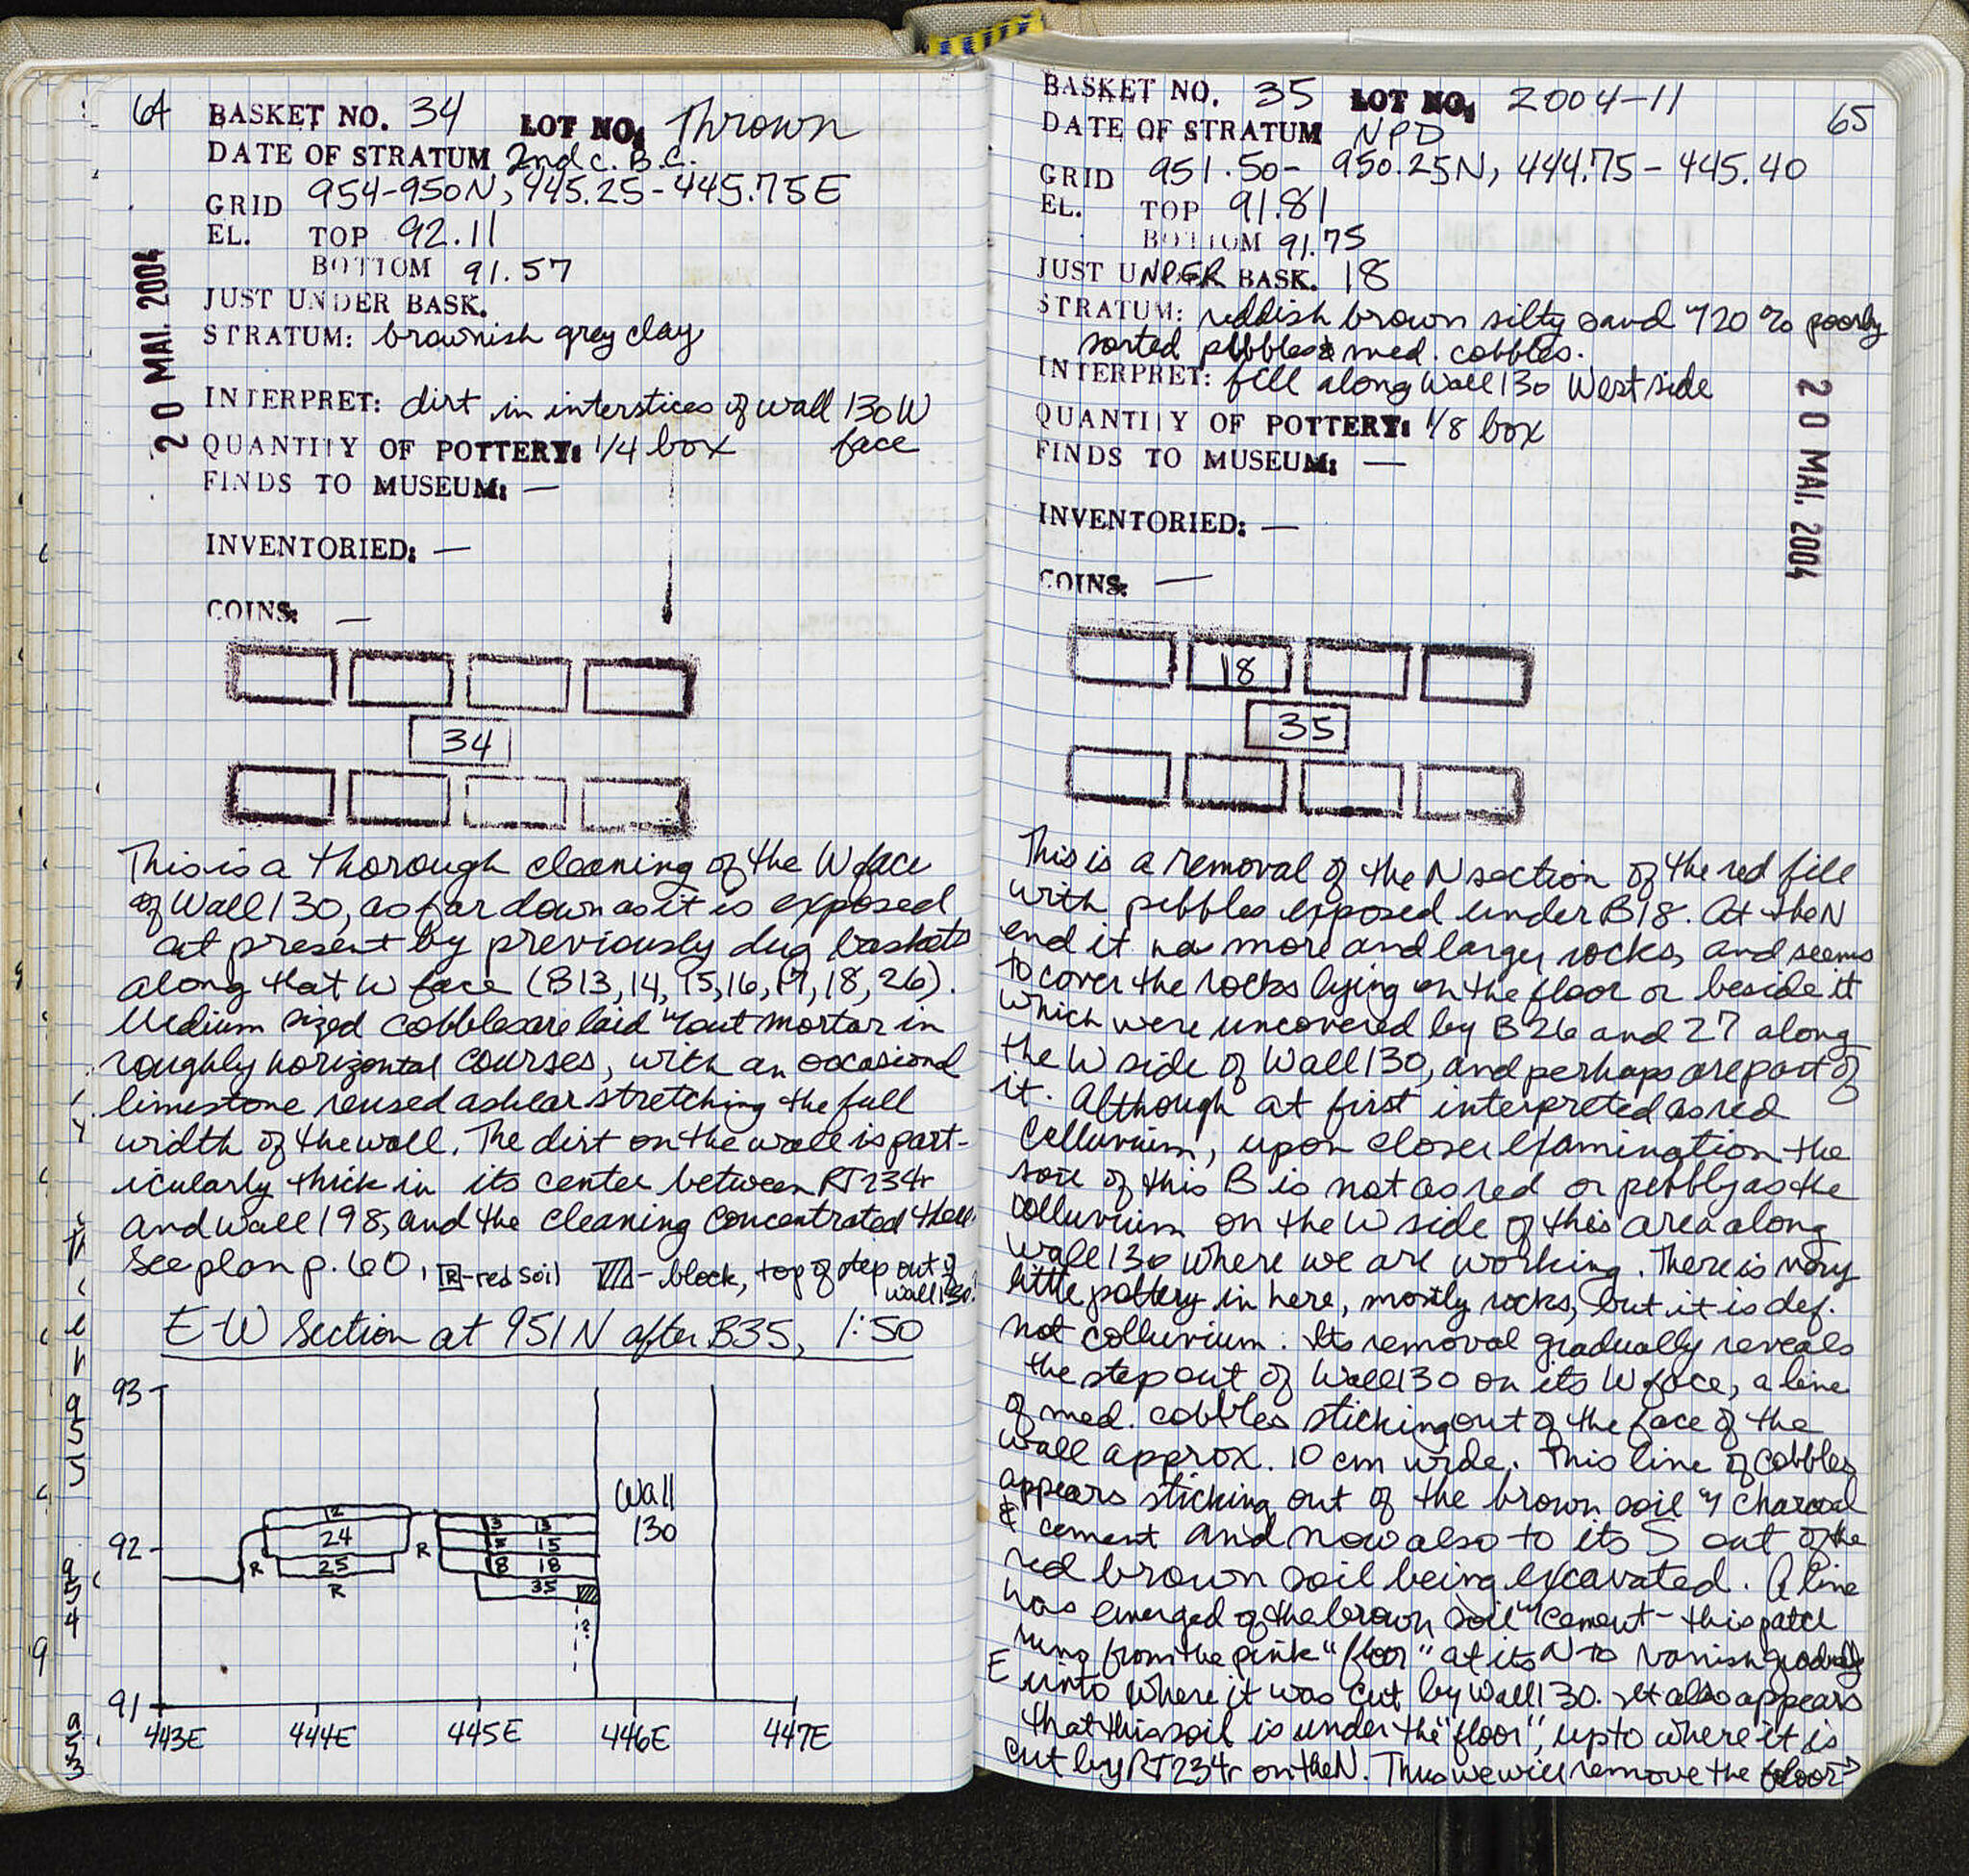 64
BASKET NO. 34 LOT NO. Thrown
DATE OF STRATUM 2nd c. B.C.
GRID 954-950N, 445.25-445.75E
EL. TOP 92.11
BOTTOM 91.57
20 MAI. 2004
JUST UNDER BASK.
STRATUM: brownish grey clay
INTERPRET: dirt in interstices of wall 130 W
face
QUANTITY OF POTTERY: 1/4 box
FINDS TO MUSEUM: —
INVENTORIED: —
COINS: —
34
This is a thorough cleaning of the W face
of Wall 130, as far down as it is exposed
at present by previously dug baskets
along that W face (B13, 14, 15, 16, 17, 18, 26).
Medium sized cobbles are laid w/out mortar in
roughly horizontal courses, with an occasional
limestone reused ashlar stretching the full
width of the wall. The dirt on the wall is part-
icularly thick in its center between RT234r
and wall 198, and the cleaning concentrated there.
See plan p. 60. R-red soil - block, top of step out of
wall 130.
E-W Section at 951N after B35, 1:50
93
92
91
12
24
25
R
R
R
13 13
15 15
18 18
35
?
Wall
130
443E 444E 445E 446E 447E
BASKET NO. 35 LOT NO. 2004-11
65
DATE OF STRATUM NPD
GRID 951.50- 950.25N, 444.75-445.40
EL. TOP 91.81
BOTTOM 91.75
JUST UNDER BASK. 18
STRATUM: reddish brown silty sand w/20% poorly
sorted pebbles & med. cobbles.
INTERPRET: fill along Wall 130 West side
QUANTITY OF POTTERY: 1/8 box
FINDS TO MUSEUM: —
20 MAI. 2004
INVENTORIED: —
COINS: —
18
35
This is a removal of the N section of the red fill
with pebbles exposed under B18. At the N
end it has more and larger rocks, and seems
to cover the rocks lying on the floor or beside it
which were uncovered by B26 and 27 along
the W side of Wall 130, and perhaps are part of
it. Although at first interpreted as red
colluvium, upon closer examination the
soil of this B is not as red or pebbly as the
colluvium on the W side of this area along
Wall 130 where we are working. There is very
little pottery in here, mostly rocks, but it is def.
not colluvium. Its removal gradually reveals
the step out of Wall 130 on its W face, a line
of med. cobbles sticking out of the face of the
wall approx. 10 cm wide. This line of cobbles
appears sticking out of the brown soil w/ charcoal
& cement and now also to its S out of the
red brown soil being excavated. A line
has emerged of the brown soil w/ cement - this patch
runs from the pink "floor" at its N to vanish gradually
E unto where it was cut by Wall 130. It also appears
that this soil is under the "floor", up to where it is
cut by RT234r on the N. Thus we will remove the floor →